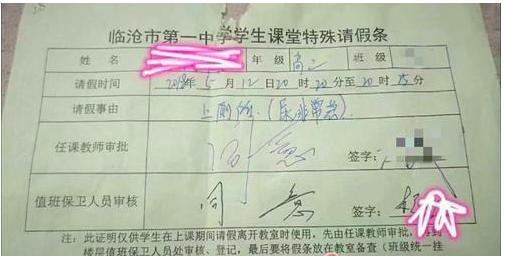 临沧市第一中学学生课堂特殊请假条
姓名 年级 高二 班级
请假时间 2018年5月12日20时20分至20时25分
请假事由 上厕所(尿非常急)
任课教师审批 同意 签字:
值班保卫人员审核 同意 签字:
注:此证明仅供学生在上课期间请假离开教室时使用,先由任课教师审批,再到
楼层值班保卫人员处审核、登记,最后要将假条放在教室备查(班级统一挂